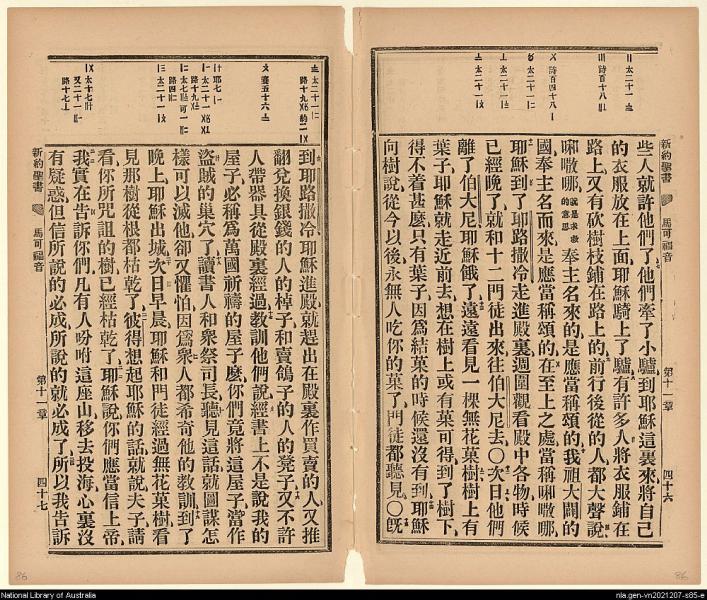 新約聖書 馬可福音 第十一章 四十六
些人就許他們了他們牽了小驢到耶穌這裏來將自己
的衣服放在上面耶穌騎上了驢有許多人將衣服鋪在
路上又有砍樹枝鋪在路上的前行後從的人都大聲說
㖿嗷哪就是求救的意思奉主名來的是應當稱頌的我祖大闢的
國奉主名而來是應當稱頌的在至上之處當稱㖿嗷哪
耶穌到了耶路撒冷走進殿裏週圍觀看殿中各物時候
已經晚了就和十二門徒出來往伯大尼去〇次日他們
離了伯大尼耶穌餓了遠遠看見一棵無花菓樹樹上有
葉子耶穌就走近前去想在樹上或有菓可得到了樹下
得不着甚麽只有葉子因爲結菓的時候還沒有到耶穌
向樹說從今以後永無人吃你的菓了門徒都聽見〇旣
到耶路撒冷耶穌進殿就趕出在殿裏作買賣的人又推
翻兌換銀錢的人的棹子和賣鴿子的人的凳子又不許
人帶器具從殿裏經過教訓他們說經書上不是說我的
屋子必稱爲萬國祈禱的屋子麽你們竟將這屋子當作
盜賊的巢穴了讀書人和衆祭司長聽見這話就圖謀怎
樣可以滅他卻又懼怕因爲衆人都希奇他的教訓到了
晚上耶穌出城次日早晨耶穌和門徒經過無花菓樹看
見那樹從根都枯乾了彼得想起耶穌的話就說夫子請
看你所咒詛的樹已經枯乾了耶穌說你們應當信上帝
我實在告訴你們凡有人吩咐這座山移去投海心裏沒
有疑惑但信所說的必成所說的就必成了所以我告訴
新約聖書 馬可福音 第十一章 四十七
86
86
National Library of Australia
nla.gen-vn2021207-s85-e